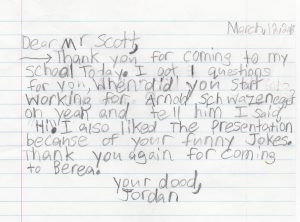 March, 12, 2018
Dear Mr Scott,
→ Thank you for coming to my
school Today. I got 1 questions
for you, when did you start
working for Arnold Schwazenegar
oh yeah and tell him I said
"Hi". I also liked The Presentation
because of your funny Jokes.
Thank you again for coming
to Berea!
your dood,
Jordan